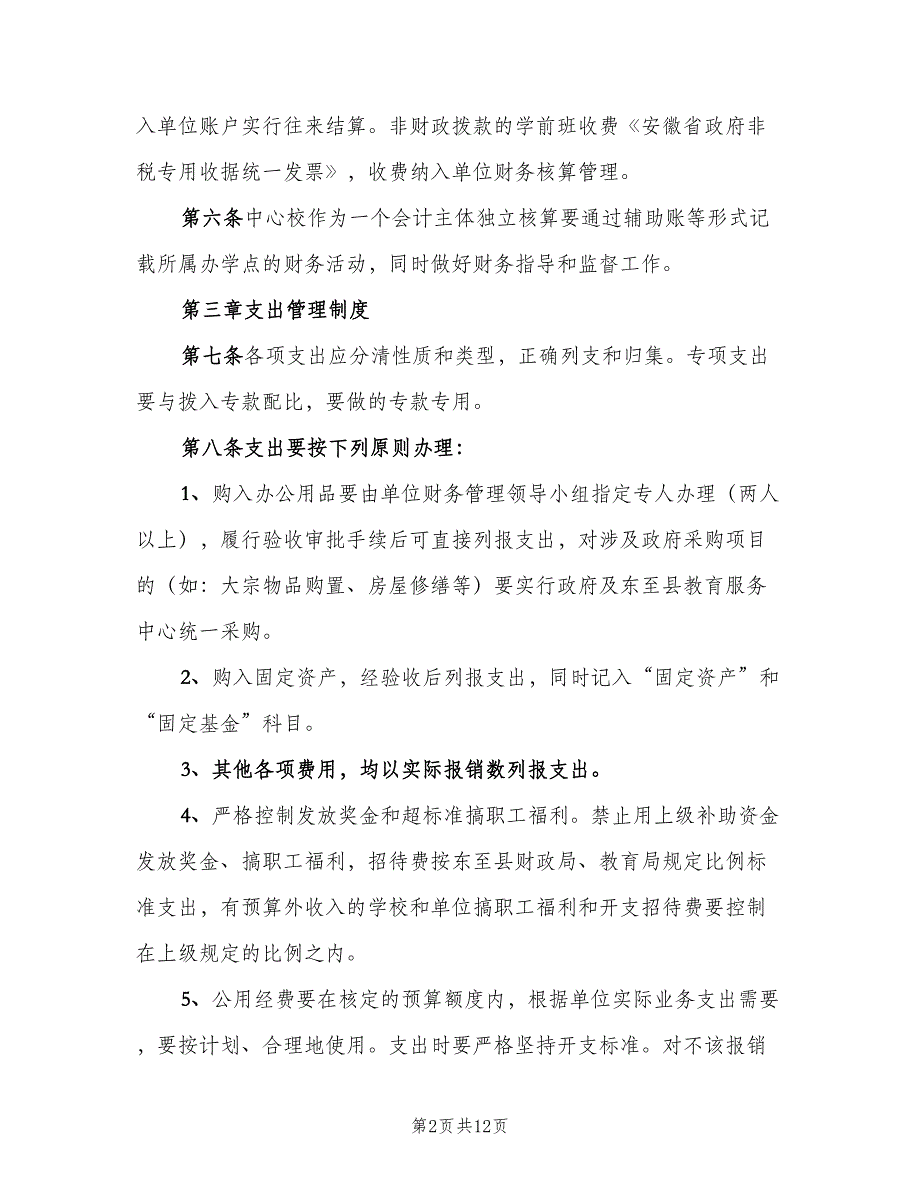 入单位账户实行往来结算。非财政拨款的学前班收费《安徽省政府非
税专用收据统一发票》，收费纳入单位财务核算管理。
第六条中心校作为一个会计主体独立核算要通过辅助账等形式记
载所属办学点的财务活动，同时做好财务指导和监督工作。
第三章支出管理制度
第七条各项支出应分清性质和类型，正确列支和归集。专项支出
要与拨入专款配比，要做的专款专用。
第八条支出要按下列原则办理：
1、购入办公用品要由单位财务管理领导小组指定专人办理（两人
以上），履行验收审批手续后可直接列报支出，对涉及政府采购项目
的（如：大宗物品购置、房屋修缮等）要实行政府及东至县教育服务
中心统一采购。
2、购入固定资产，经验收后列报支出，同时记入“固定资产”和
“固定基金”科目。
3、其他各项费用，均以实际报销数列报支出。
4、严格控制发放奖金和超标准搞职工福利。禁止用上级补助资金
发放奖金、搞职工福利，招待费按东至县财政局、教育局规定比例标
准支出，有预算外收入的学校和单位搞职工福利和开支招待费要控制
在上级规定的比例之内。
5、公用经费要在核定的预算额度内，根据单位实际业务支出需要
，要按计划、合理地使用。支出时要严格坚持开支标准。对不该报销
第2页共12页